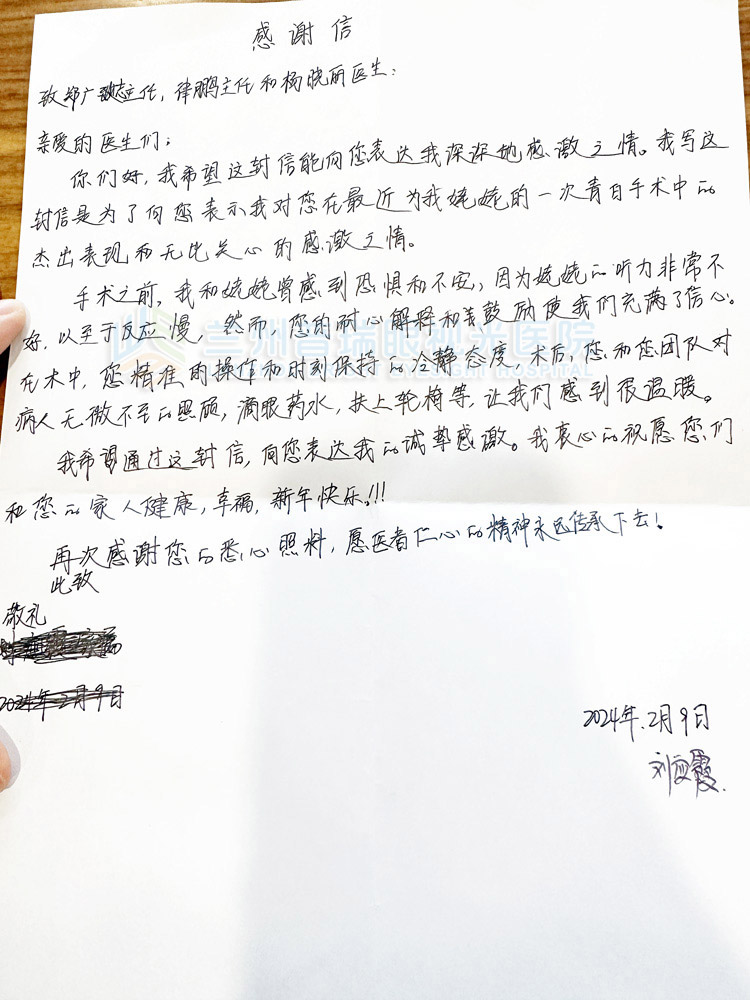 感谢信
致郑广志主任，律鹏主任和杨晓丽医生：
亲爱的医生们：
你们好，我希望这封信能向您表达我深深地感激之情。我写这
封信是为了向您表示我对您在最近为我姥姥的一次青白手术中的
杰出表现和无比关心的感激之情。
手术之前，我和姥姥曾感到恐惧和不安，因为姥姥的听力非常不
好，以至于反应慢，然而，您的耐心解释和鼓励使我们充满了信心。
在术中，您精准的操作和时刻保持的冷静态度。术后，您和您团队对
病人无微不至的照顾，滴眼药水，扶上轮椅等，让我们感到很温暖。
我希望通过这封信，向您表达我的诚挚感激。我衷心的祝愿您们
和您的家人健康，幸福，新年快乐！！！
再次感谢您的悉心照料，愿医者仁心的精神永远传承下去！
此致
敬礼
2024年2月9日
2024年.2月9日
刘应霞
兰州普瑞眼视光医院